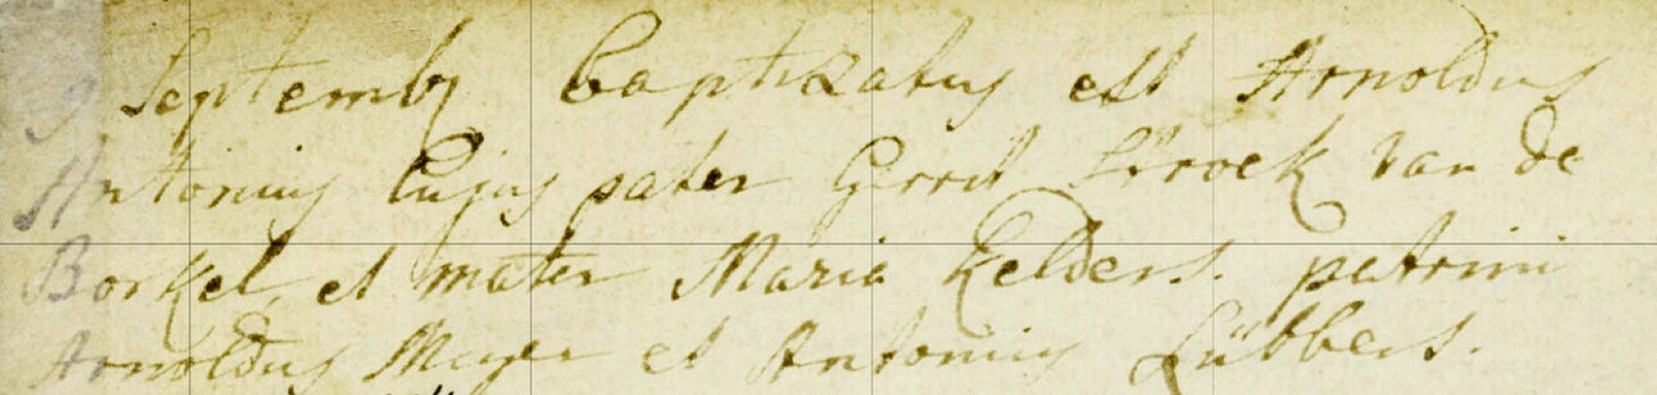 9 Septembr Baptizatus est Arnoldus
Antonius Cujus pater Gerrit Broek van de
Borkel, et mater Maria Kelders. patrini
Arnoldus Meyer et Antonius Lübbers.